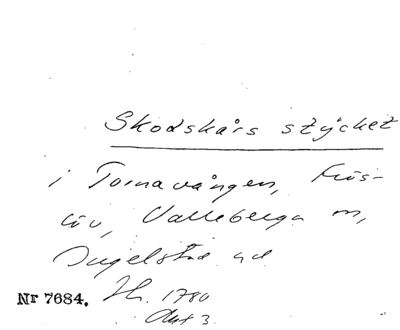 Skodskårs stÿcket
i Tornavången, Frös-
löv, Valleberga sn,
Ingelstad hd
Nr 7684. Jh. 1780
Akt 3